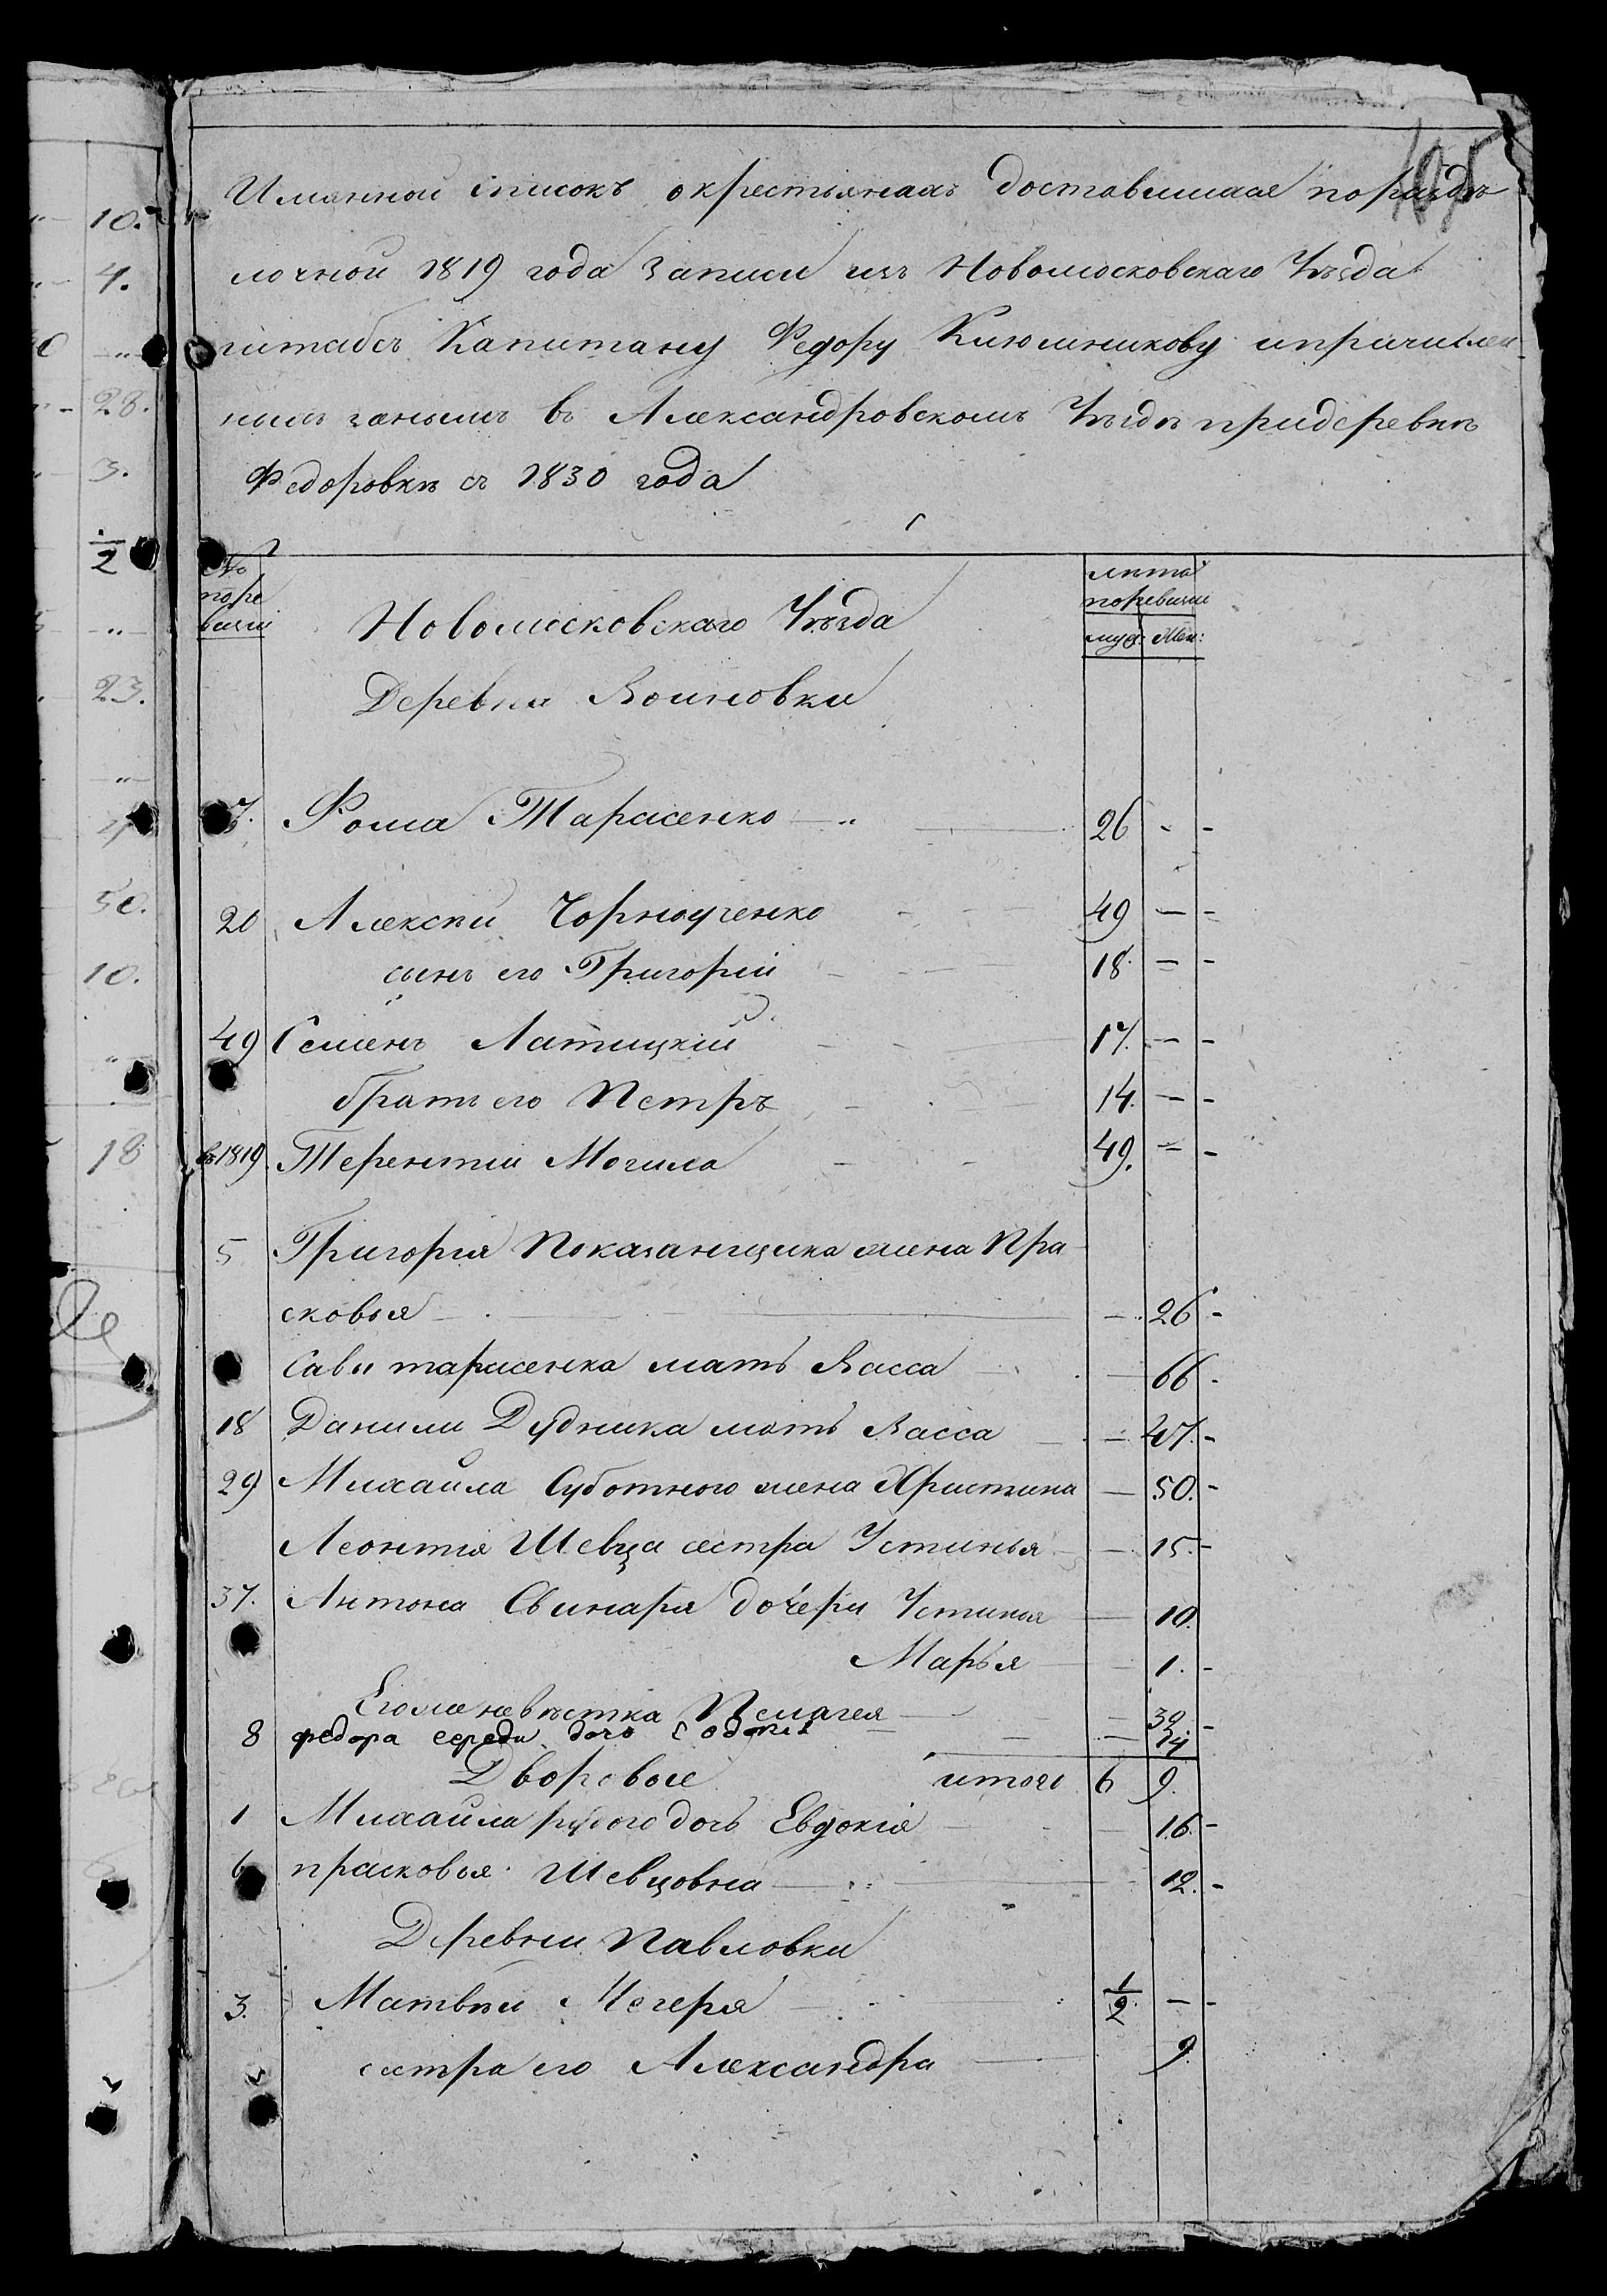 105
Имянной списокъ о крестьянахъ доставшихся по раздѣ
лочной 1819 года записи изъ Новомосковскаго Уѣзда
штабсъ Капитану Федору Ключникову и причислен
ныхъ за нымъ въ Александровскомъ Уѣздѣ при деревнѣ
Федоровкѣ съ 1830 года
№ по ре визіи
лѣта по ревизіи
муж: Жен:
Новомосковскаго Уѣзда
Деревни Воиновки
7. Фома Тарасенко 26 - -
20 Алексѣй Чорноученко 49 - -
сынъ его Григорій 18 - -
49 Семенъ Латицкій 17. - -
братъ его Петръ 14. - -
въ 1819 Терентий Могила 49. - -
5 Григорія Показанщика жена Пра
сковья - 26 -
Савы тарасенка мать Васса - 66 -
18 Данилы Дудника мать Васса - 47. -
29 Михайла Суботного жена Христина - 50. -
Леонтія Шевца сестра Устинья - 15. -
37. Антона Свинаря дочери Устинья - 10.
Марья - 1. -
Его же невѣстка Пелагея - 32. -
8 федора середы дочь - 14
Дворовые итого 6 9.
1 Михайла дочь Евдокія - 16. -
6 прасковья Шевцовна - 12. -
Деревни Павловки
3. Матвѣй Мегеря 1/2 - -
сестра его Александра 9.
10.
4.
28.
3.
2
23.
50.
10.
18